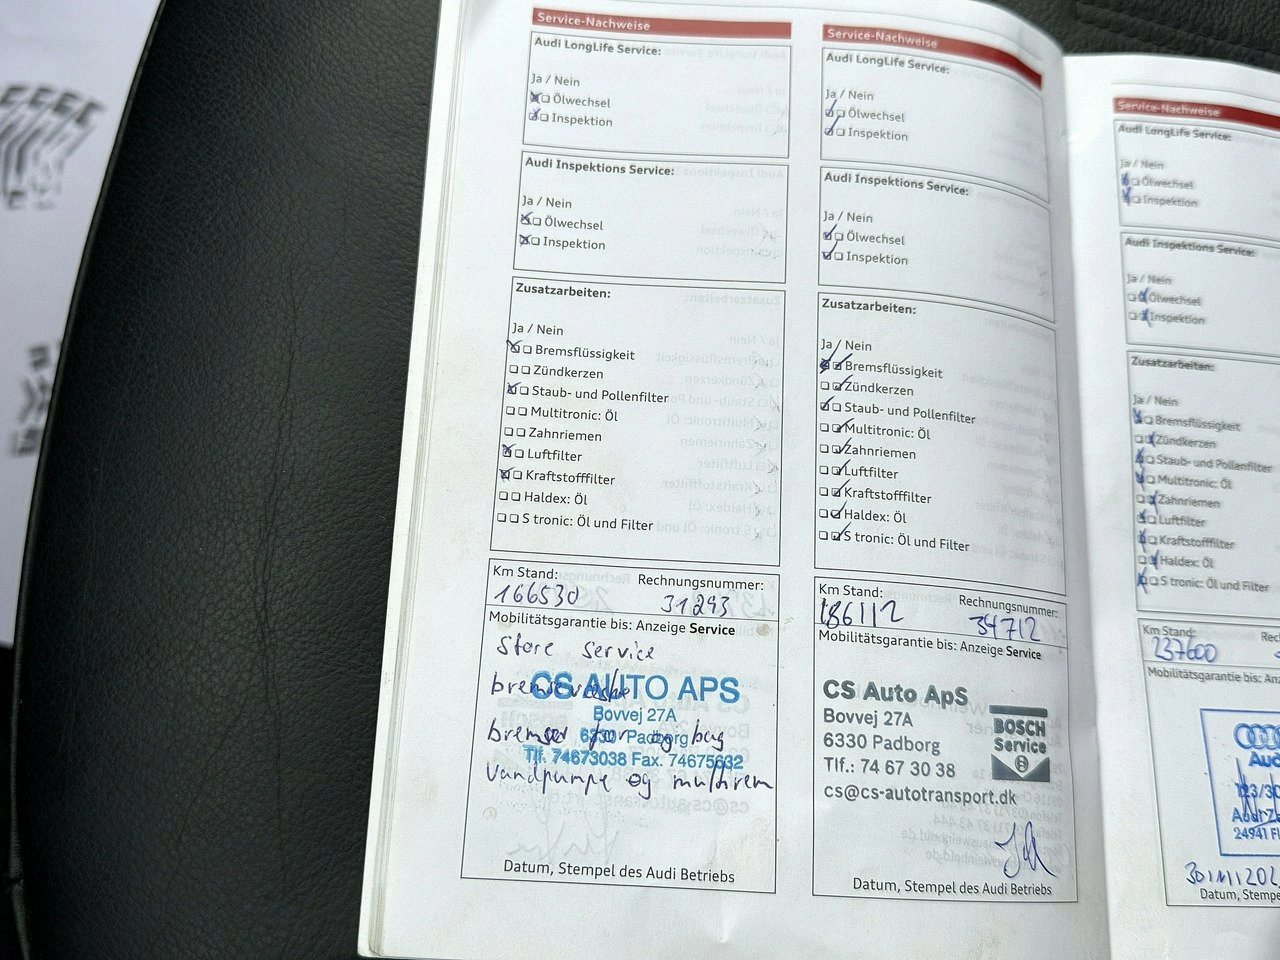 Service-Nachweise
Audi LongLife Service:
Ja / Nein
Ölwechsel
Inspektion
Audi Inspektions Service:
Ja / Nein
Ölwechsel
Inspektion
Zusatzarbeiten:
Ja / Nein
Bremsflüssigkeit
Zündkerzen
Staub- und Pollenfilter
Multitronic: Öl
Zahnriemen
Luftfilter
Kraftstofffilter
Haldex: Öl
S tronic: Öl und Filter
Km Stand: Rechnungsnummer:
166530 31293
Mobilitätsgarantie bis: Anzeige Service
Store service
bremsevæske
CS AUTO APS
Bovvej 27A
bremser for og bag
6330 Padborg
Tlf. 74673038 Fax. 74675632
Vandpumpe og multirem
Datum, Stempel des Audi Betriebs
Service-Nachweise
Audi LongLife Service:
Ja / Nein
Ölwechsel
Inspektion
Audi Inspektions Service:
Ja / Nein
Ölwechsel
Inspektion
Zusatzarbeiten:
Ja / Nein
Bremsflüssigkeit
Zündkerzen
Staub- und Pollenfilter
Multitronic: Öl
Zahnriemen
Luftfilter
Kraftstofffilter
Haldex: Öl
S tronic: Öl und Filter
Km Stand: Rechnungsnummer:
186112 34712
Mobilitätsgarantie bis: Anzeige Service
CS Auto ApS
Bovvej 27A
6330 Padborg
Tlf.: 74 67 30 38
cs@cs-autotransport.dk
BOSCH
Service
Datum, Stempel des Audi Betriebs
Service-Nachweise
Audi LongLife Service:
Ja / Nein
Ölwechsel
Inspektion
Audi Inspektions Service:
Ja / Nein
Ölwechsel
Inspektion
Zusatzarbeiten:
Ja / Nein
Bremsflüssigkeit
Zündkerzen
Staub- und Pollenfilter
Multitronic: Öl
Zahnriemen
Luftfilter
Kraftstofffilter
Haldex: Öl
S tronic: Öl und Filter
Km Stand:
237600
Mobilitätsgarantie bis:
24941
Datum,